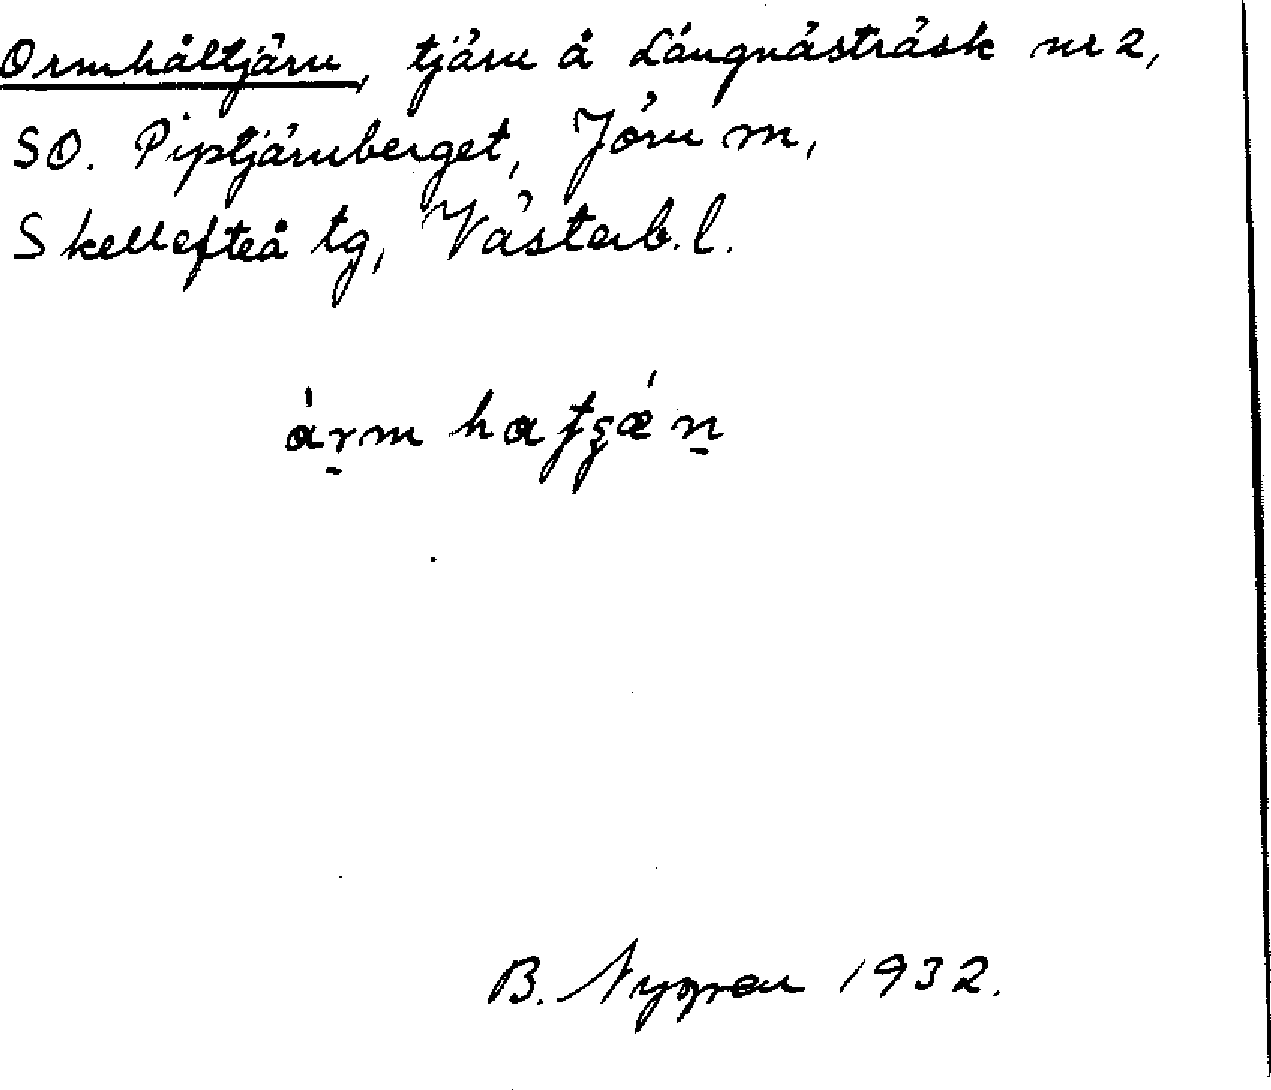 Ormhåltjärn, tjärn å Långnästräsk nr 2,
SO. Piptjärnberget, Jörn m,
Skellefteå tg, Västerb. l.
B. Nygren 1932.